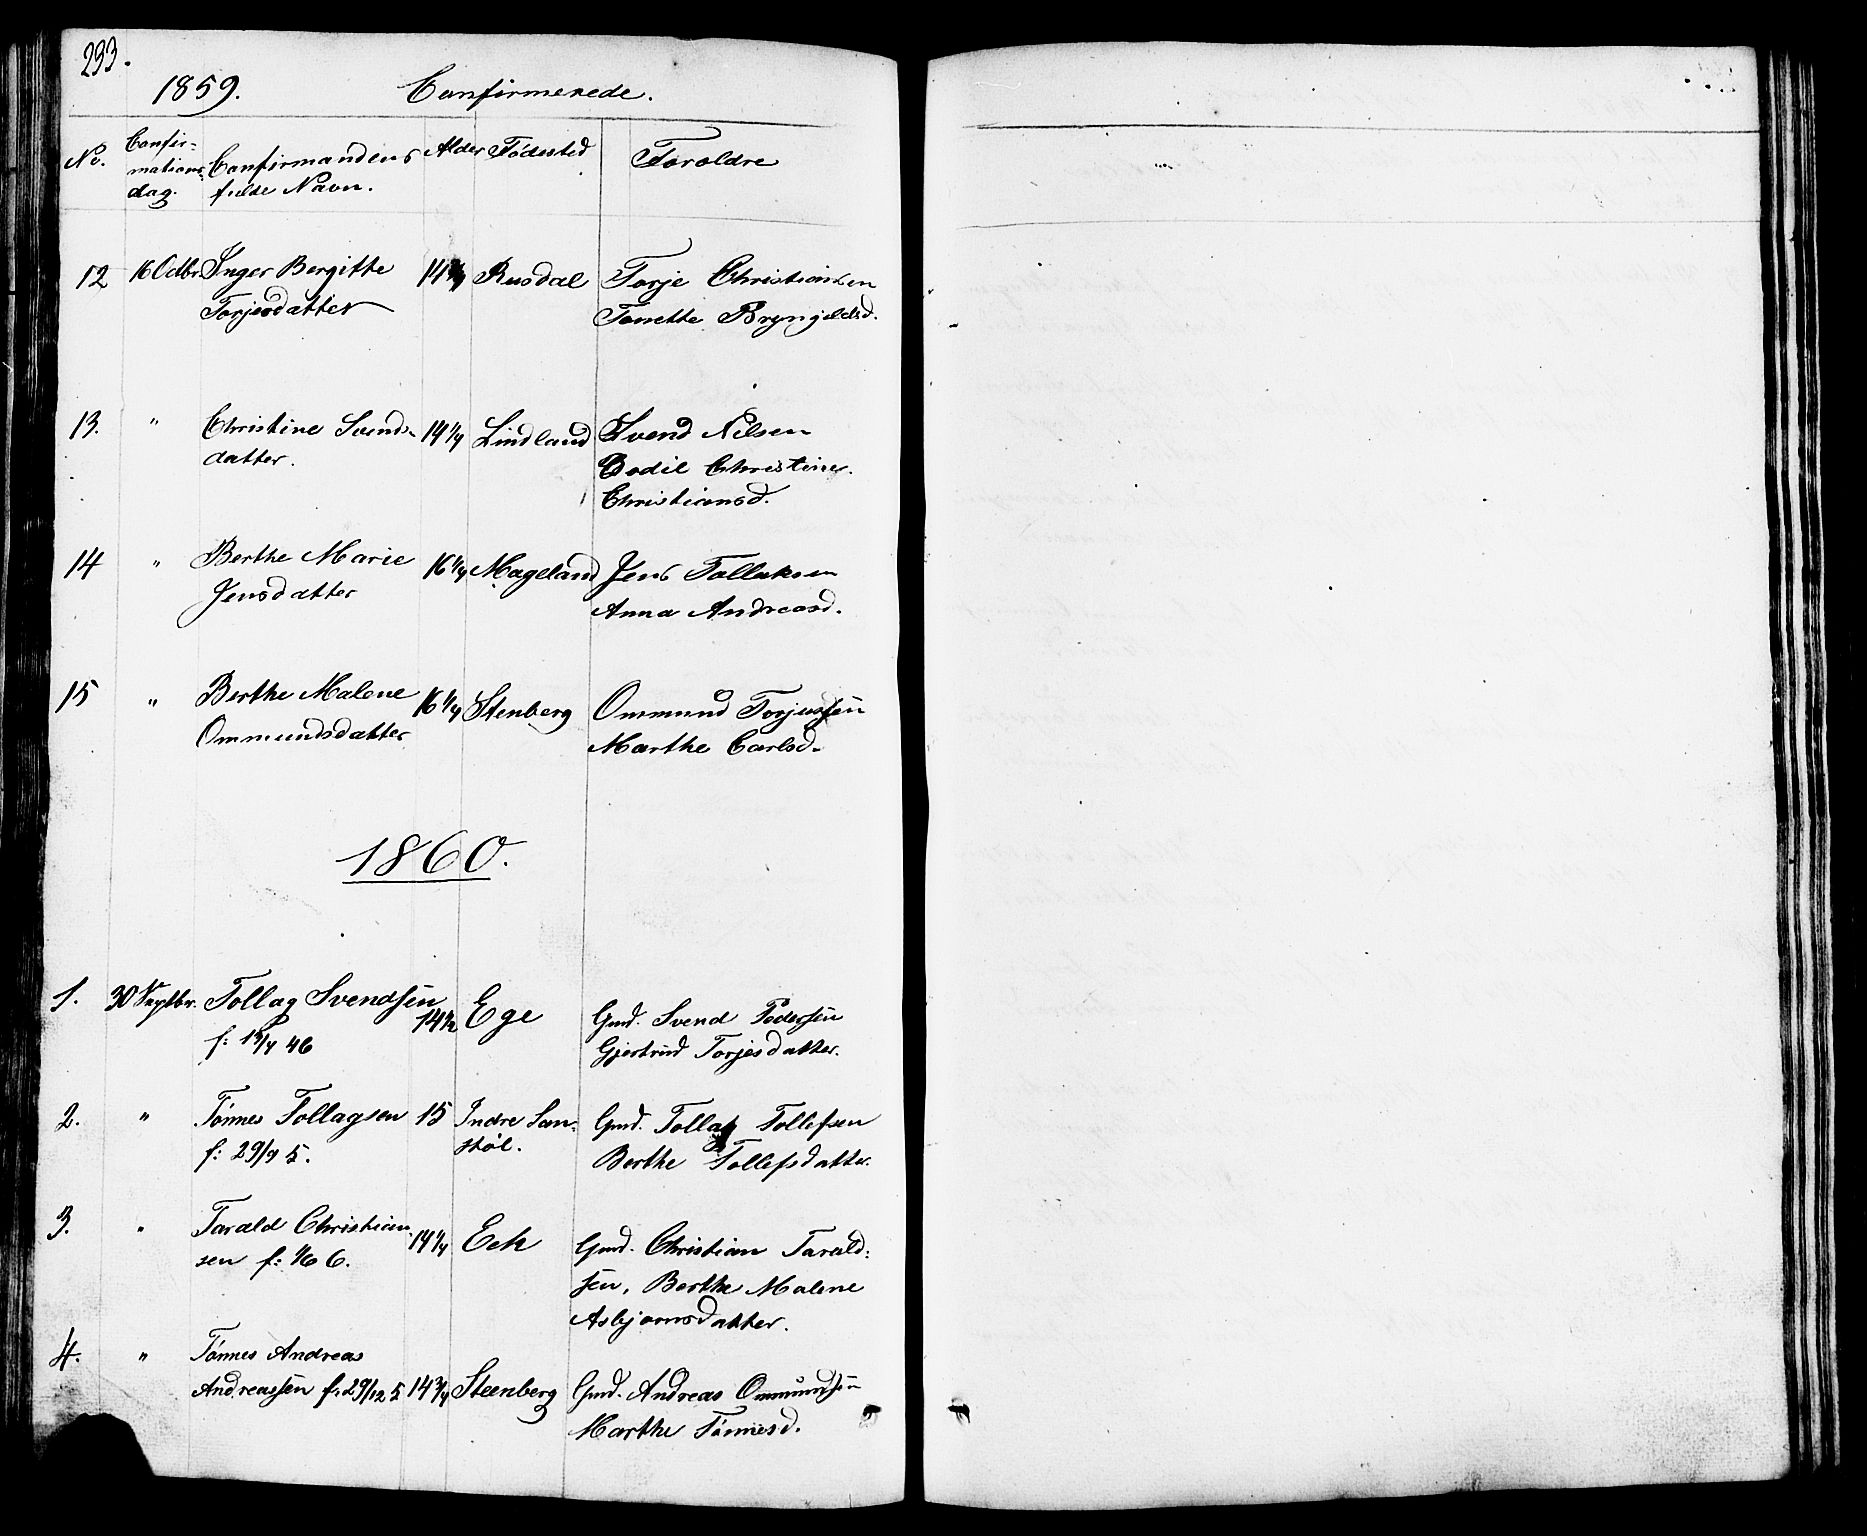 293.
1859. Confirmerede.
No. Confir-mations-dag. Confirmandens fulde Navn. Alder Fødested Forældre
12 16 Octbr. Inger Bergitte 14 Rusdal Torje Christiansen
Torjesdatter Tonette Bryngelsd.
13. " Christine Svends- 14 1/4 Lindland Svend Nilsen
datter. Bodil Christine
Christiansd.
14 " Berthe Marie 16 1/4 Mageland Jens Tollaksen
Jensdatter Anna Andreasd.
15 " Berthe Malene 16 1/4 Stenberg Ommund Torjussen
Ommundsdatter Marthe Carlsd.
1860.
1. 30 Septbr. Tollag Svendsen 14 1/2 Ege Gmd. Svend Pedersen
f: 15/4 46 Gjertrud Torjesdatter.
2. " Tønnes Tollagsen 15 Indre San- Gmd. Tollag Tollefsen
f: 29/9 5. støl. Berthe Tollefsdatter.
3. " Tarald Christian 14 1/4 Eek Gmd. Christian Tarald-
sen f: 1/6 6. sen, Berthe Malene
Asbjørnsdatter.
4. " Tønnes Andreas
Andreassen f: 29/12 5 14 3/4 Steenberg Gmd. Andreas Ommundsen
Marthe Tønnesd.